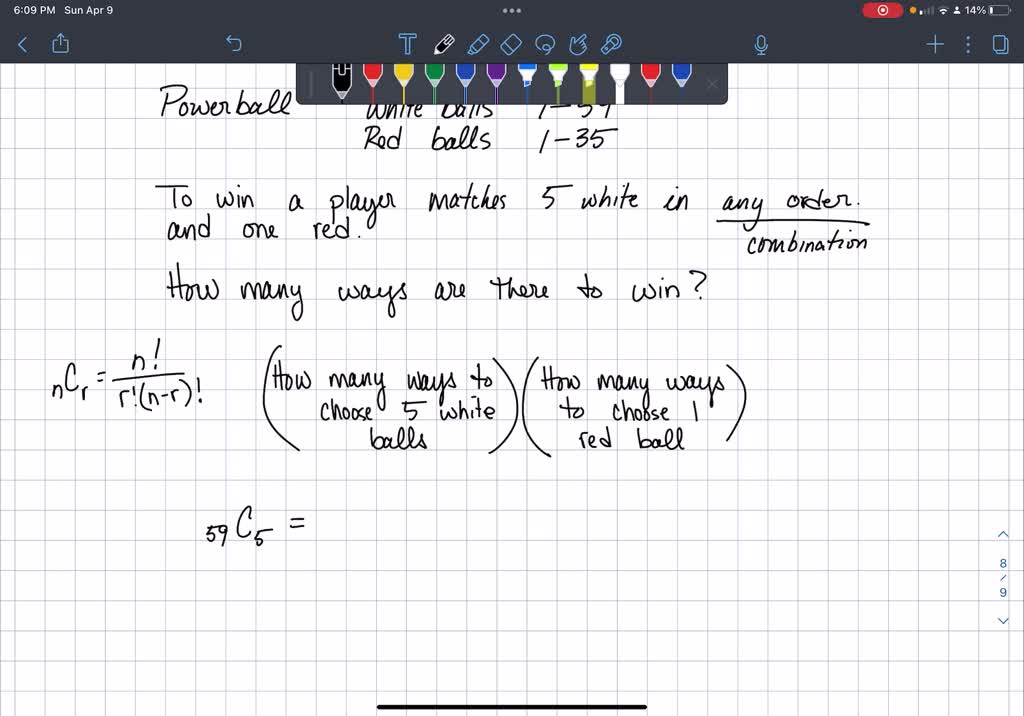 6:09 PM Sun Apr 9
14%
T
Powerball White balls 1-59
Red balls 1-35
To win a player matches 5 white in any order.
and one red.
combination
How many ways are there to win?
nCr = n! / r!(n-r)!
(How many ways to choose 5 white balls)
(How many ways to choose 1 red ball)
59C5 =
8
/
9